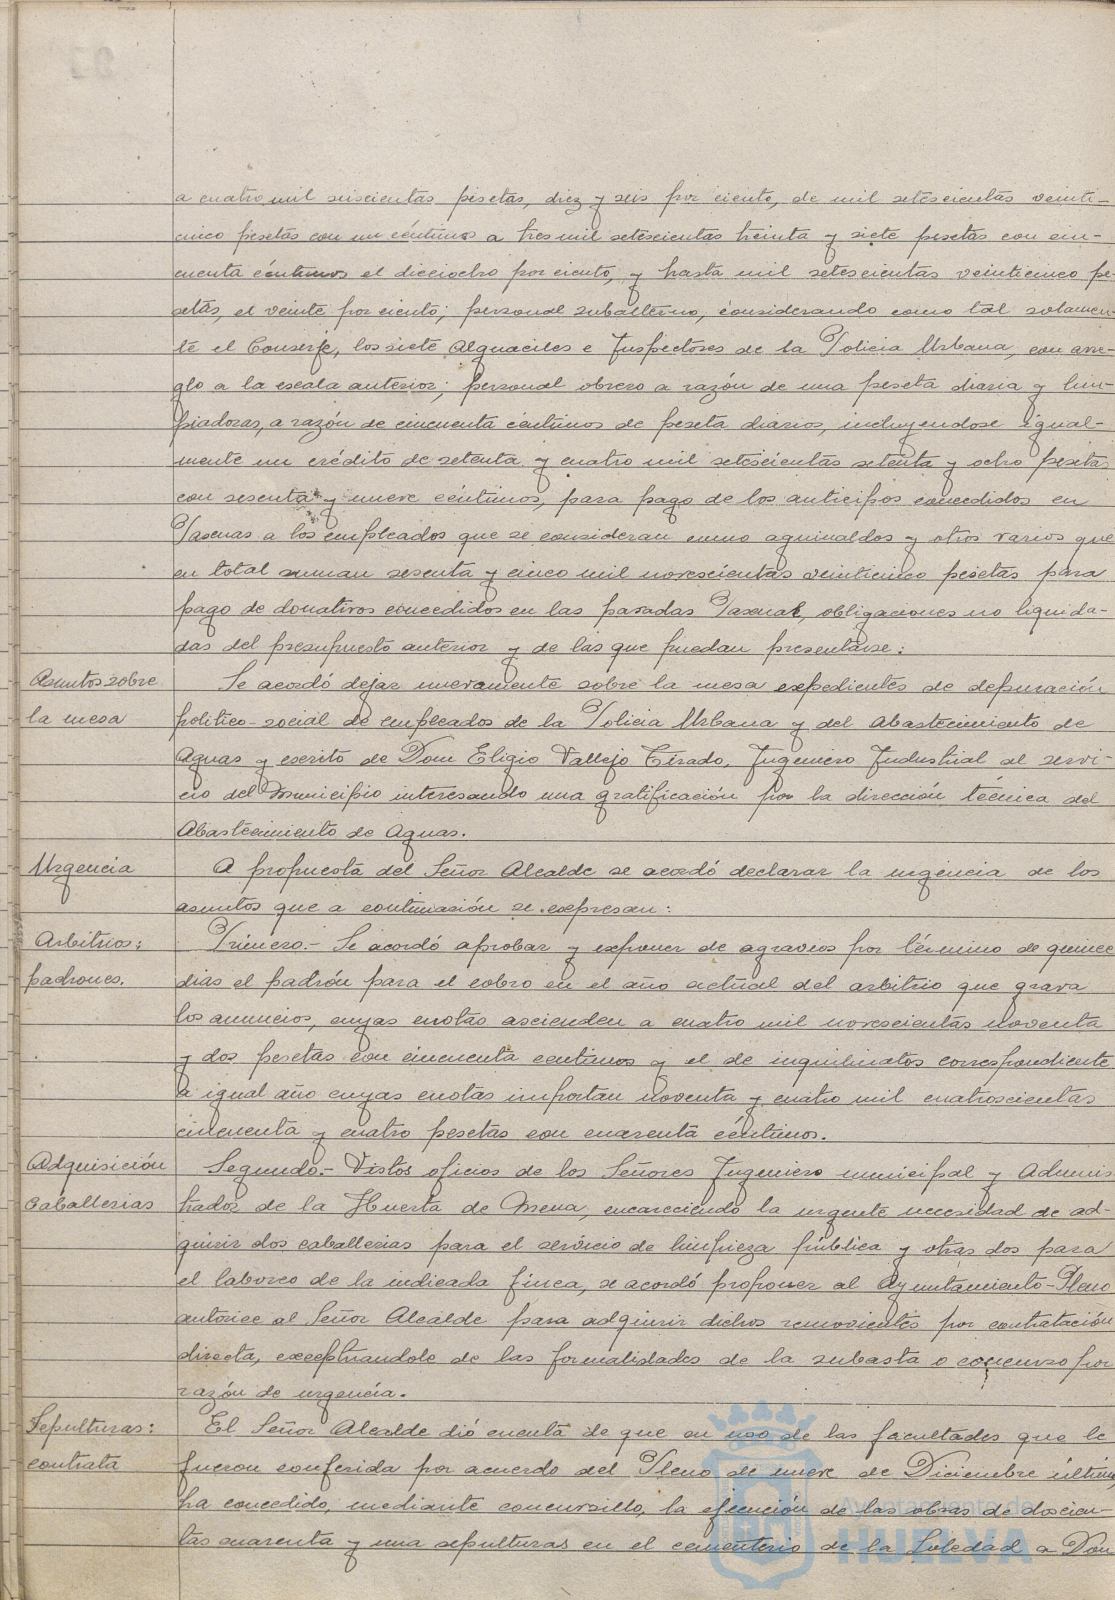 a cuatro mil seiscientas pesetas, diez y seis por ciento, de mil setescientas veinti-
cinco pesetas con un céntimos a tres mil setescientas treinta y siete pesetas con cin-
cuenta céntimos el dieciocho por ciento, y hasta mil setescientas veinticinco pe-
setas, el veinte por ciento; personal subalterno, considerando como tal solamen-
te el Conserje, los siete Alguaciles e Inspectores de la Policia Urbana, con arre-
glo a la escala anterior; personal obrero a razón de una peseta diaria y lim-
piadoras, a razón de cincuenta céntimos de peseta diarios, incluyendose igual-
mente un crédito de setenta y cuatro mil setescientas setenta y ocho pesetas
con sesenta y nueve céntimos, para pago de los anticipos concedidos en
Pascuas a los empleados que se consideran como aguinaldos y otros varios que
en total suman sesenta y cinco mil novescientas veinticinco pesetas para
pago de donativos concedidos en las pasadas Pascuas, obligaciones no liquida-
das del presupuesto anterior y de las que puedan presentarse:
Asuntos sobre la mesa
Se acordó dejar nuevamente sobre la mesa expedientes de depuración
politico-social de empleados de la Policia Urbana y del Abastecimiento de
Aguas y escrito de Don Eligio Vallejo Tirado, Ingeniero Industrial al servi-
cio del Municipio interesando una gratificación por la dirección técnica del
Abastecimiento de Aguas.
Urgencia
A propuesta del Señor Alcalde se acordó declarar la urgencia de los
asuntos que a continuación se expresan:
Arbitrios: padrones.
Primero.- Se acordó aprobar y exponer de agravios por término de quince
dias el padrón para el cobro en el año actual del arbitrio que grava
los anuncios, cuyas cuotas ascienden a cuatro mil novescientas noventa
y dos pesetas con cincuenta centimos y el de inquilinatos correspondiente
a igual año cuyas cuotas importan noventa y cuatro mil cuatroscientas
cincuenta y cuatro pesetas con cuarenta céntimos.
Adquisición Caballerias
Segundo.- Vistos oficios de los Señores Ingeniero municipal y Adminis
trador de la Huerta de Mena, encareciendo la urgente necesidad de ad-
quirir dos caballerias para el servicio de limpieza pública y otras dos para
el laboreo de la indicada finca, se acordó proponer al Ayuntamiento-Pleno
autorice al Señor Alcalde para adquirir dichos semovientes por contratación
directa, exceptuandole de las formalidades de la subasta o concurso por
razón de urgencia.
Sepulturas: contrata
El Señor Alcalde dió cuenta de que en uso de las facultades que le
fueron conferida por acuerdo del Pleno de nueve de Diciembre último,
ha concedido, mediante concursillo, la ejecución de las obras de doscien-
tas cuarenta y una sepulturas en el cementerio de la Soledad a Don
Ayuntamiento de
HUELVA